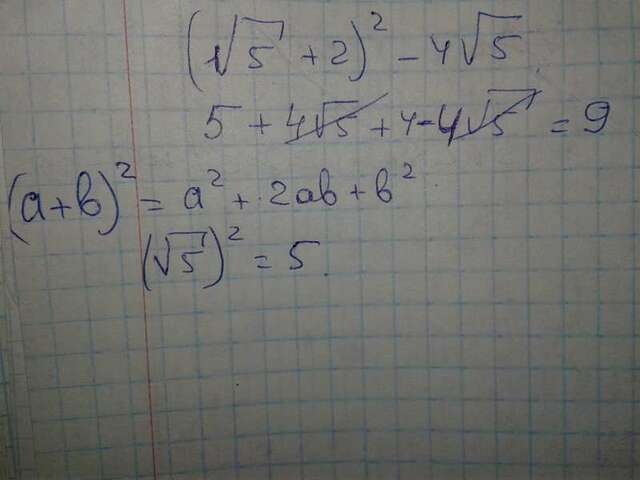 (√5 + 2)² - 4√5
5 + 4√5 + 4 - 4√5 = 9
(a+b)² = a² + 2ab + b²
(√5)² = 5.